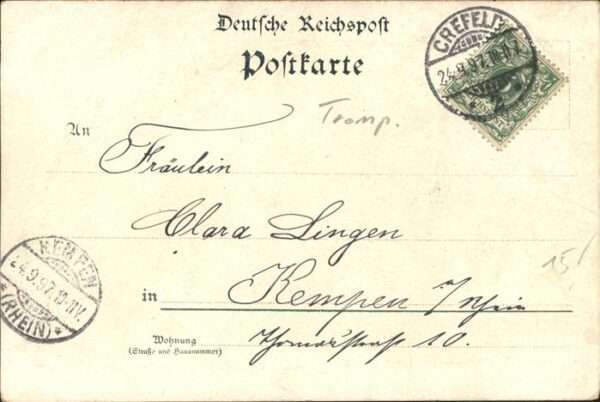 Deutsche Reichspost
Postkarte
CREFELD
24.9.97.10-11V.
* 2 *
Tromp.
An
Fräulein
Clara Lingen
in Kempen / Rhein
Wohnung
(Straße und Hausnummer)
Thomasstrasse 10.
KEMPEN
24.9.97.10-11V.
*(RHEIN)*
15/